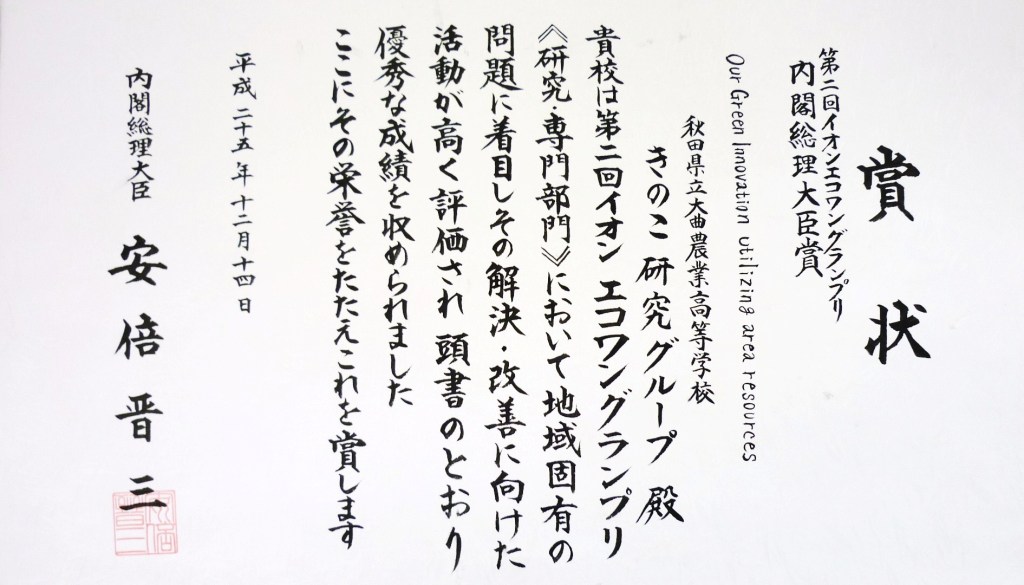 賞状
第二回イオンエコワングランプリ
内閣総理大臣賞
Our Green Innovation utilizing area resources
秋田県立大曲農業高等学校
きのこ研究グループ 殿
貴校は第二回イオンエコワングランプリ
《研究・専門部門》において地域固有の
問題に着目しその解決・改善に向けた
活動が高く評価され頭書のとおり
優秀な成績を収められました
ここにその栄誉をたたえこれを賞します
平成二十五年十二月十四日
内閣総理大臣 安倍晋三